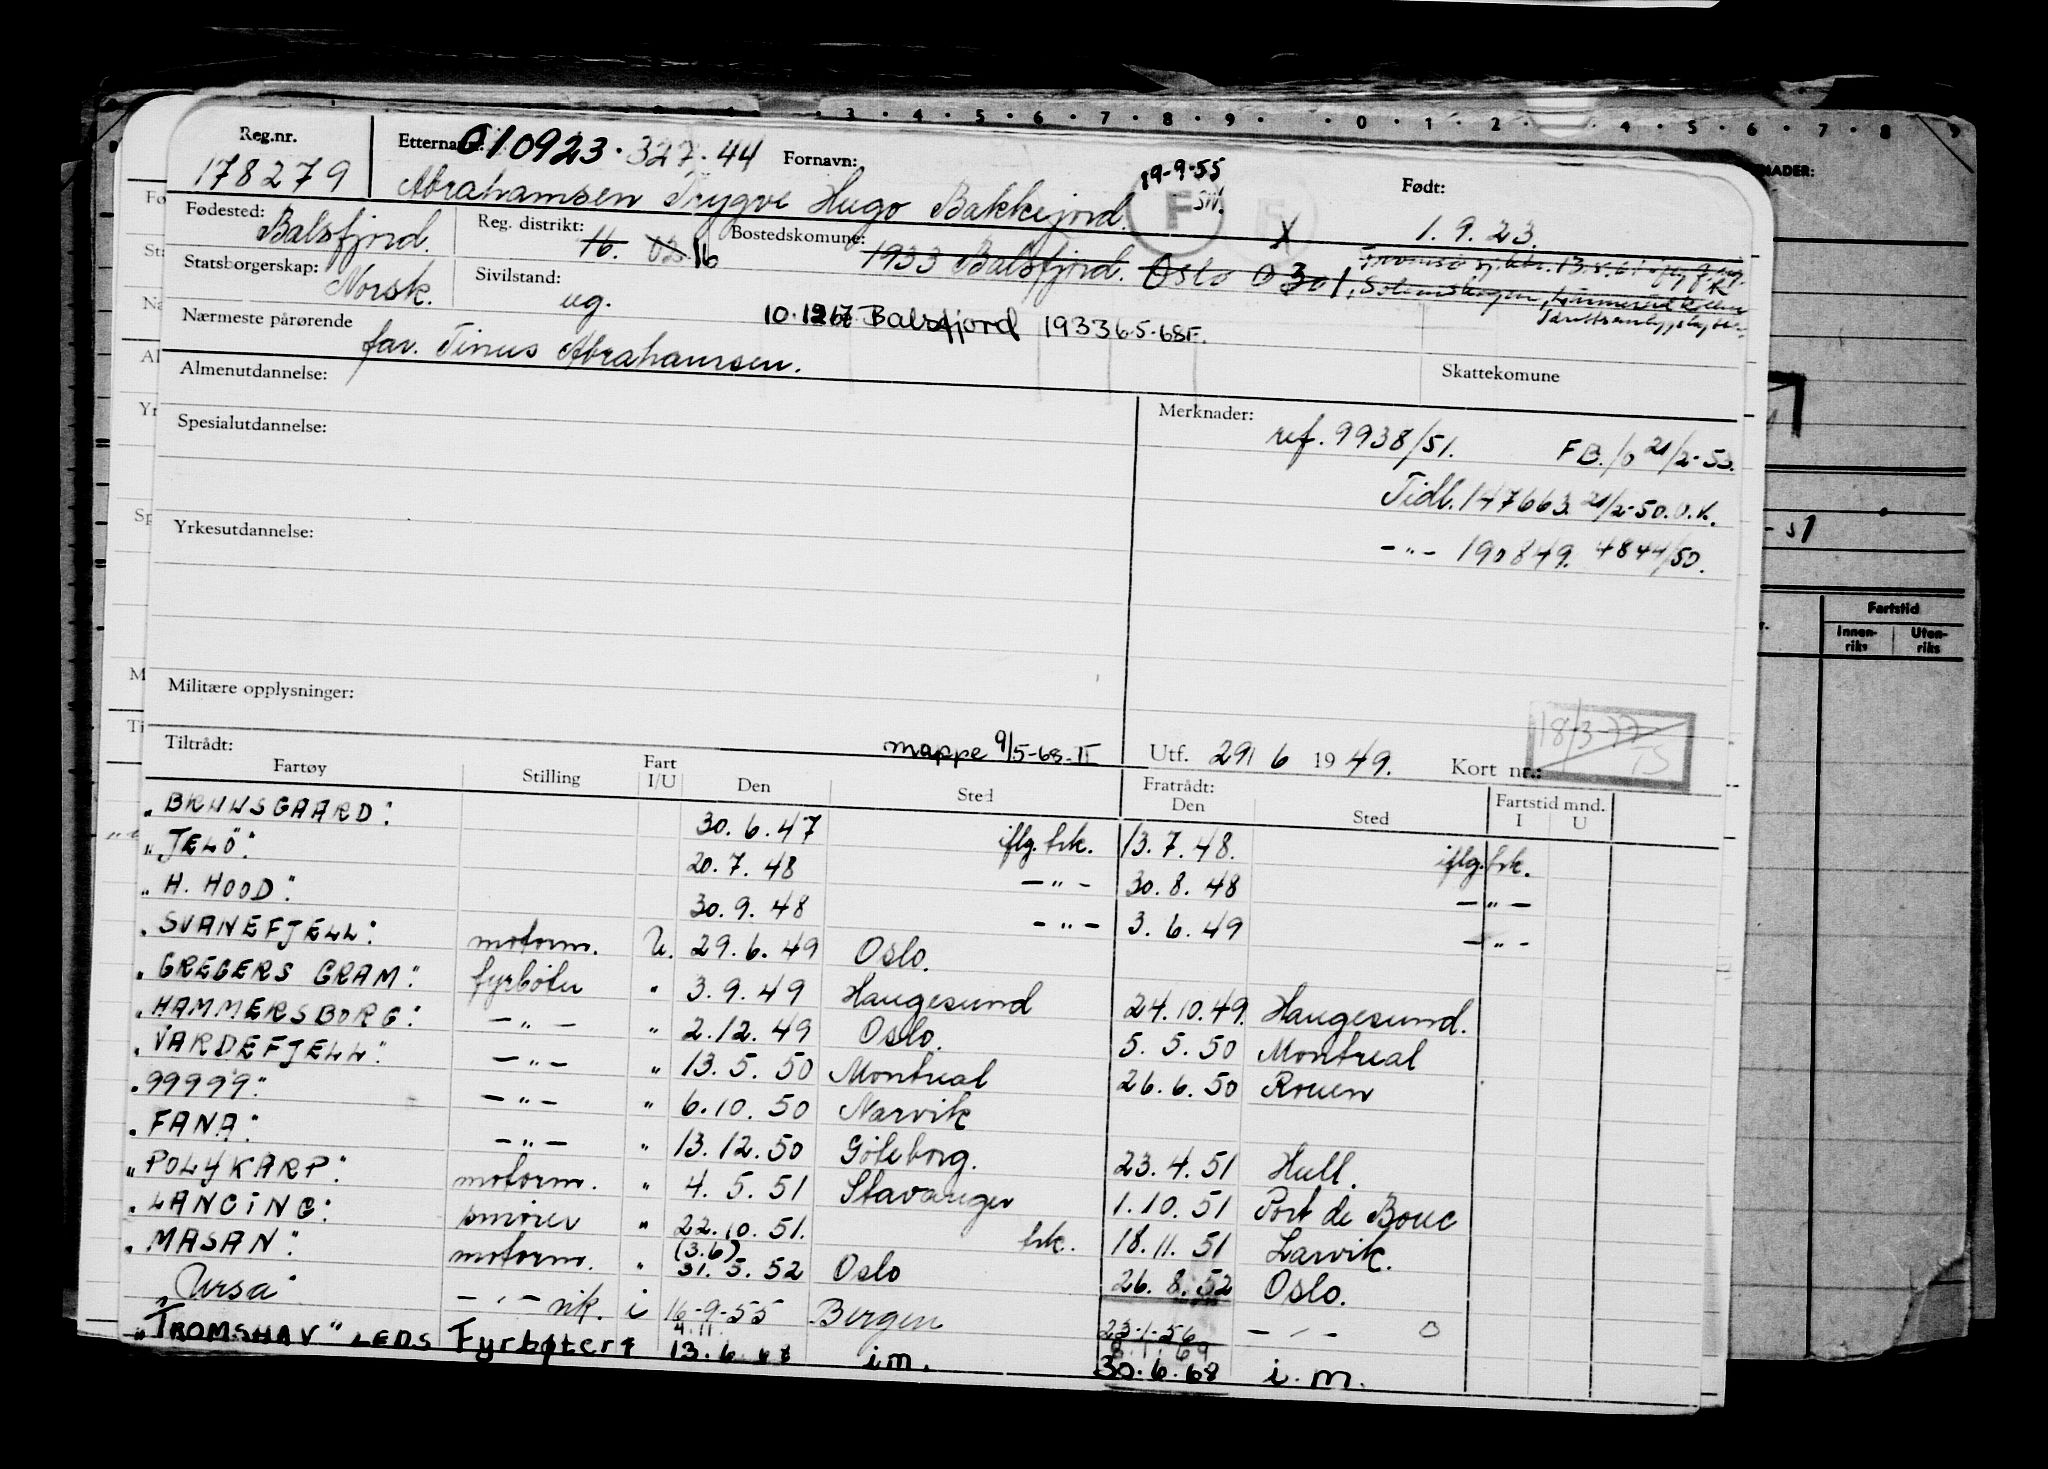 Reg.nr. 178279
Etternavn: 010923.327.44 Fornavn: Født:
Abrahamsen Trygve Hugo Bakkejord. 19-9-55 F 1.9.23.
Fødested: Balsfjord. Reg. distrikt: 16. 03 16 Bostedskomune: 1933 Balsfjord. Oslo 0301, X
Statsborgerskap: Norsk. Sivilstand: ug.
10.12 67 Balsfjord 1933 6.5-68F.
Nærmeste pårørende far. Tinus Abrahamsen.
Almenutdannelse: Skattekomune
Spesialutdannelse: Merknader: ref. 9938/51. FB./o 21/2-50.
Tidl. 147663. 21/2-50. O.K.
Yrkesutdannelse: —"— 190849. 4844/50.
Militære opplysninger:
18/3-77 TS
mappe 9/5-68-II Utf. 29/6 1949. Kort nr.:
Tiltrådt: Fratrådt:
Fartøy Stilling Fart I/U Den Sted Den Sted Fartstid mnd. I U
"BRUNSGAARD". 30.6.47 iflg. brk. 13.7.48. iflg. brk.
"JELÖ". 20.7.48 —"— 30.8.48 —"—
"H. HOOD". 30.9.48 —"— 3.6.49 —"—
"SVANEFJELL". motorm. U. 29.6.49 Oslo.
"GREGERS GRAM". fyrbøter " 3.9.49 Haugesund 24.10.49. Haugesund.
"HAMMERSBORG". —"— " 2.12.49 Oslo. 5.5.50 Montreal
"VARDEFJELL". —"— " 13.5.50 Montreal 26.6.50 Rouen
"99999". —"— " 6.10.50 Narvik
"FANA". —"— " 13.12.50 Göteborg. 23.4.51 Hull.
"POLYKARP". motorm. " 4.5.51 Stavanger 1.10.51 Port de Bouc
"LANCING". smører " 22.10.51. brk. 18.11.51 Larvik.
"MASAN". motorm. " (3.6) 31.5.52 Oslo 26.8.52 Oslo.
"Ursa" —"— vik. i 16-9-55 Bergen 23-1-56 —"— O
4.11. 8.1.69
"TROMSHAV" LEDS Fyrbøter i 13.6.68 i.m. 30.6.68 i.m.
NADER:
Fartstid
Innen-riks Uten-riks